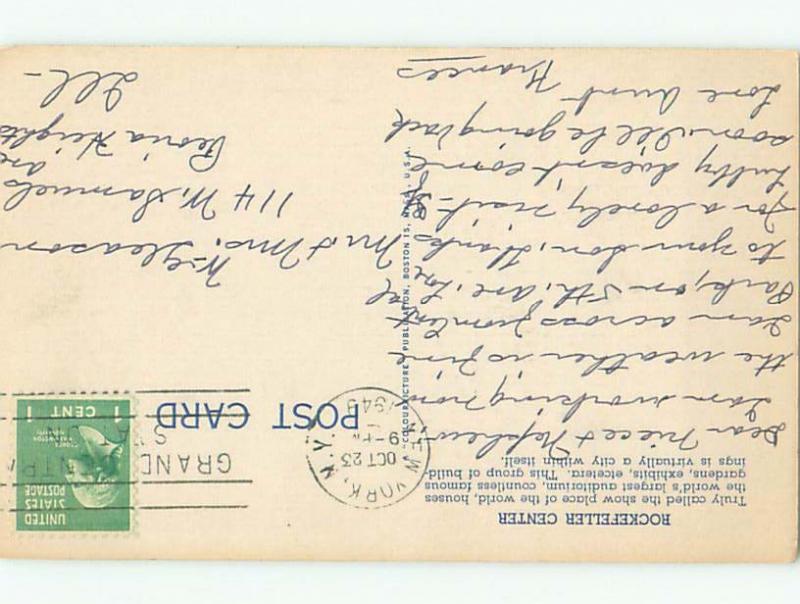 ROCKEFELLER CENTER
Truly called the show place of the world, houses
the world's largest auditorium, countless famous
gardens, exhibits, etcetera. This group of build-
ings is virtually a city within itself.
Dear Niece & Nephew,
Iam working now
the weather is fine
Iam across from
Park, on 5th. ave. Love
to your Son, thanks
for a lovely visit- If
doesn't come
soon Ill be going back
Love Aunt Frances
A "COLOURPICTURE PUBLICATION, BOSTON 15, MASS., U.S.A.
POST CARD
NEW YORK, N.Y.
OCT 23
1945
GRAND CENTRAL
STA.
UNITED
STATES
POSTAGE
1 CENT 1
Mr & Mrs. Gleason
114 W. Samuels ave
Peoria Heights
Ill-